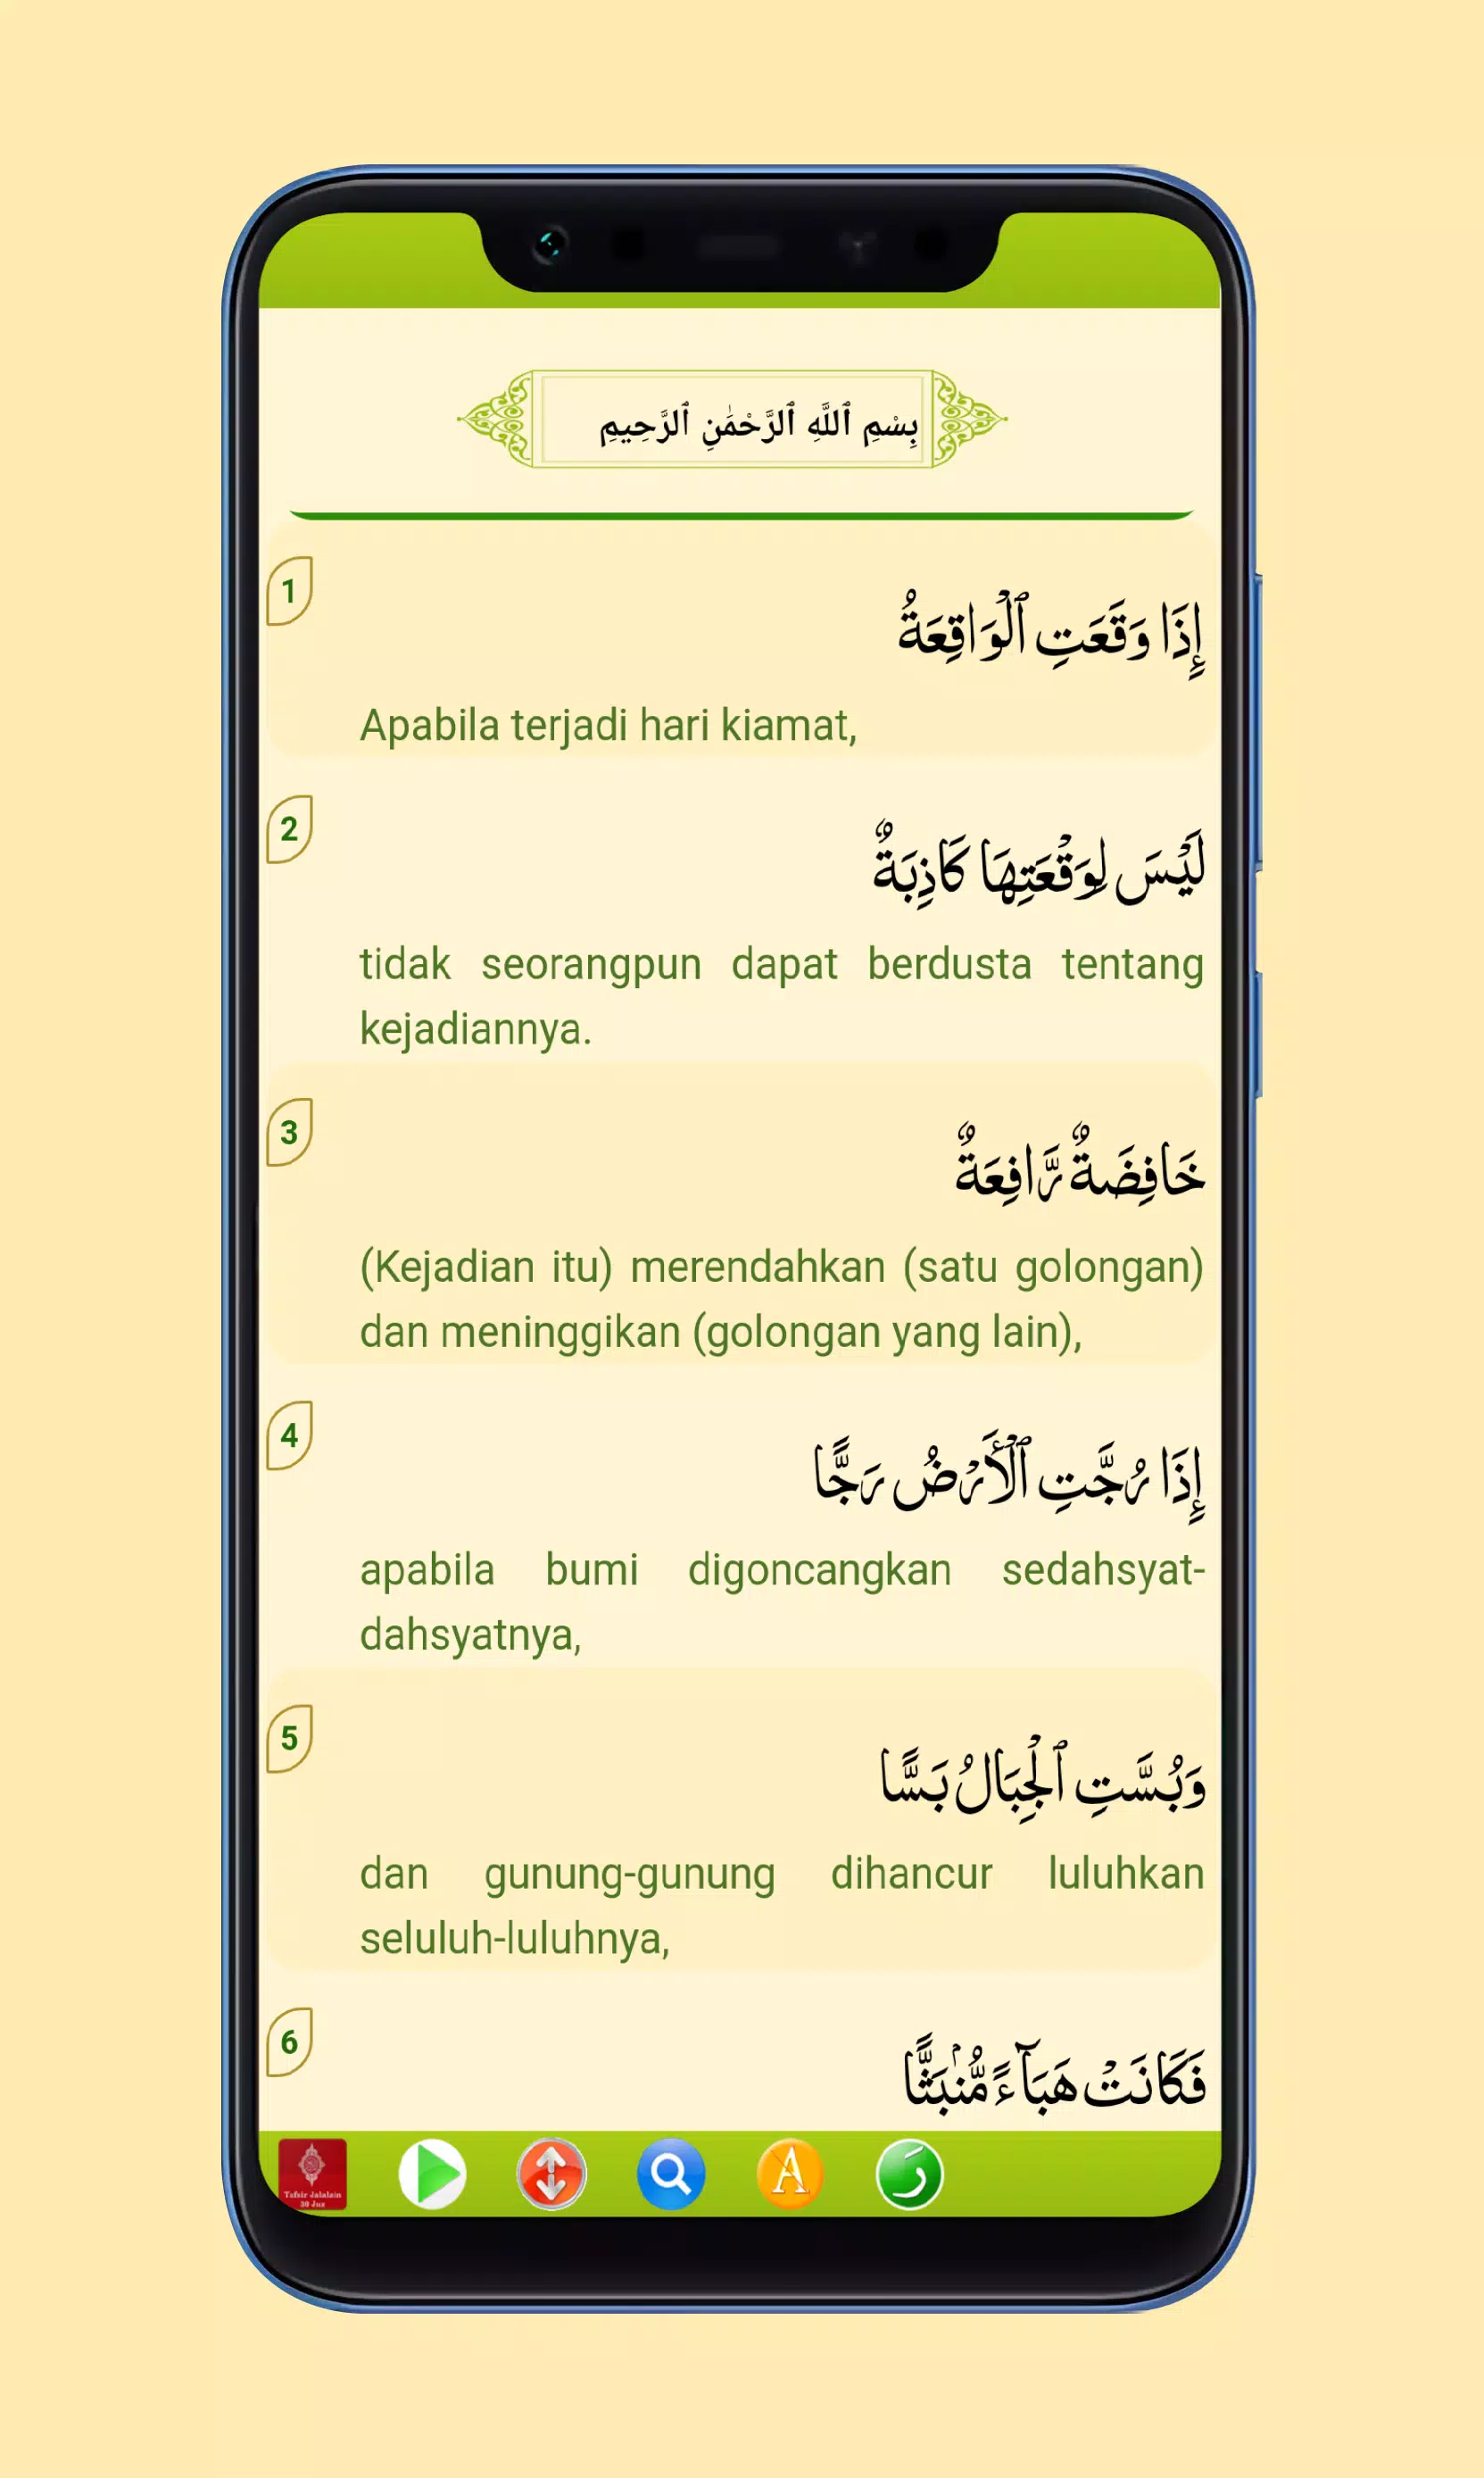 بِسْمِ ٱللَّهِ ٱلرَّحْمَٰنِ ٱلرَّحِيمِ
1
إِذَا وَقَعَتِ ٱلْوَاقِعَةُ
Apabila terjadi hari kiamat,
2
لَيْسَ لِوَقْعَتِهَا كَاذِبَةٌ
tidak seorangpun dapat berdusta tentang
kejadiannya.
3
خَافِضَةٌ رَّافِعَةٌ
(Kejadian itu) merendahkan (satu golongan)
dan meninggikan (golongan yang lain),
4
إِذَا رُجَّتِ ٱلْأَرْضُ رَجًّا
apabila bumi digoncangkan sedahsyat-
dahsyatnya,
5
وَبُسَّتِ ٱلْجِبَالُ بَسًّا
dan gunung-gunung dihancur luluhkan
seluluh-luluhnya,
6
فَكَانَتْ هَبَآءً مُّنۢبَثًّا
Tafsir Jalalain
30 Juz
A
رَ